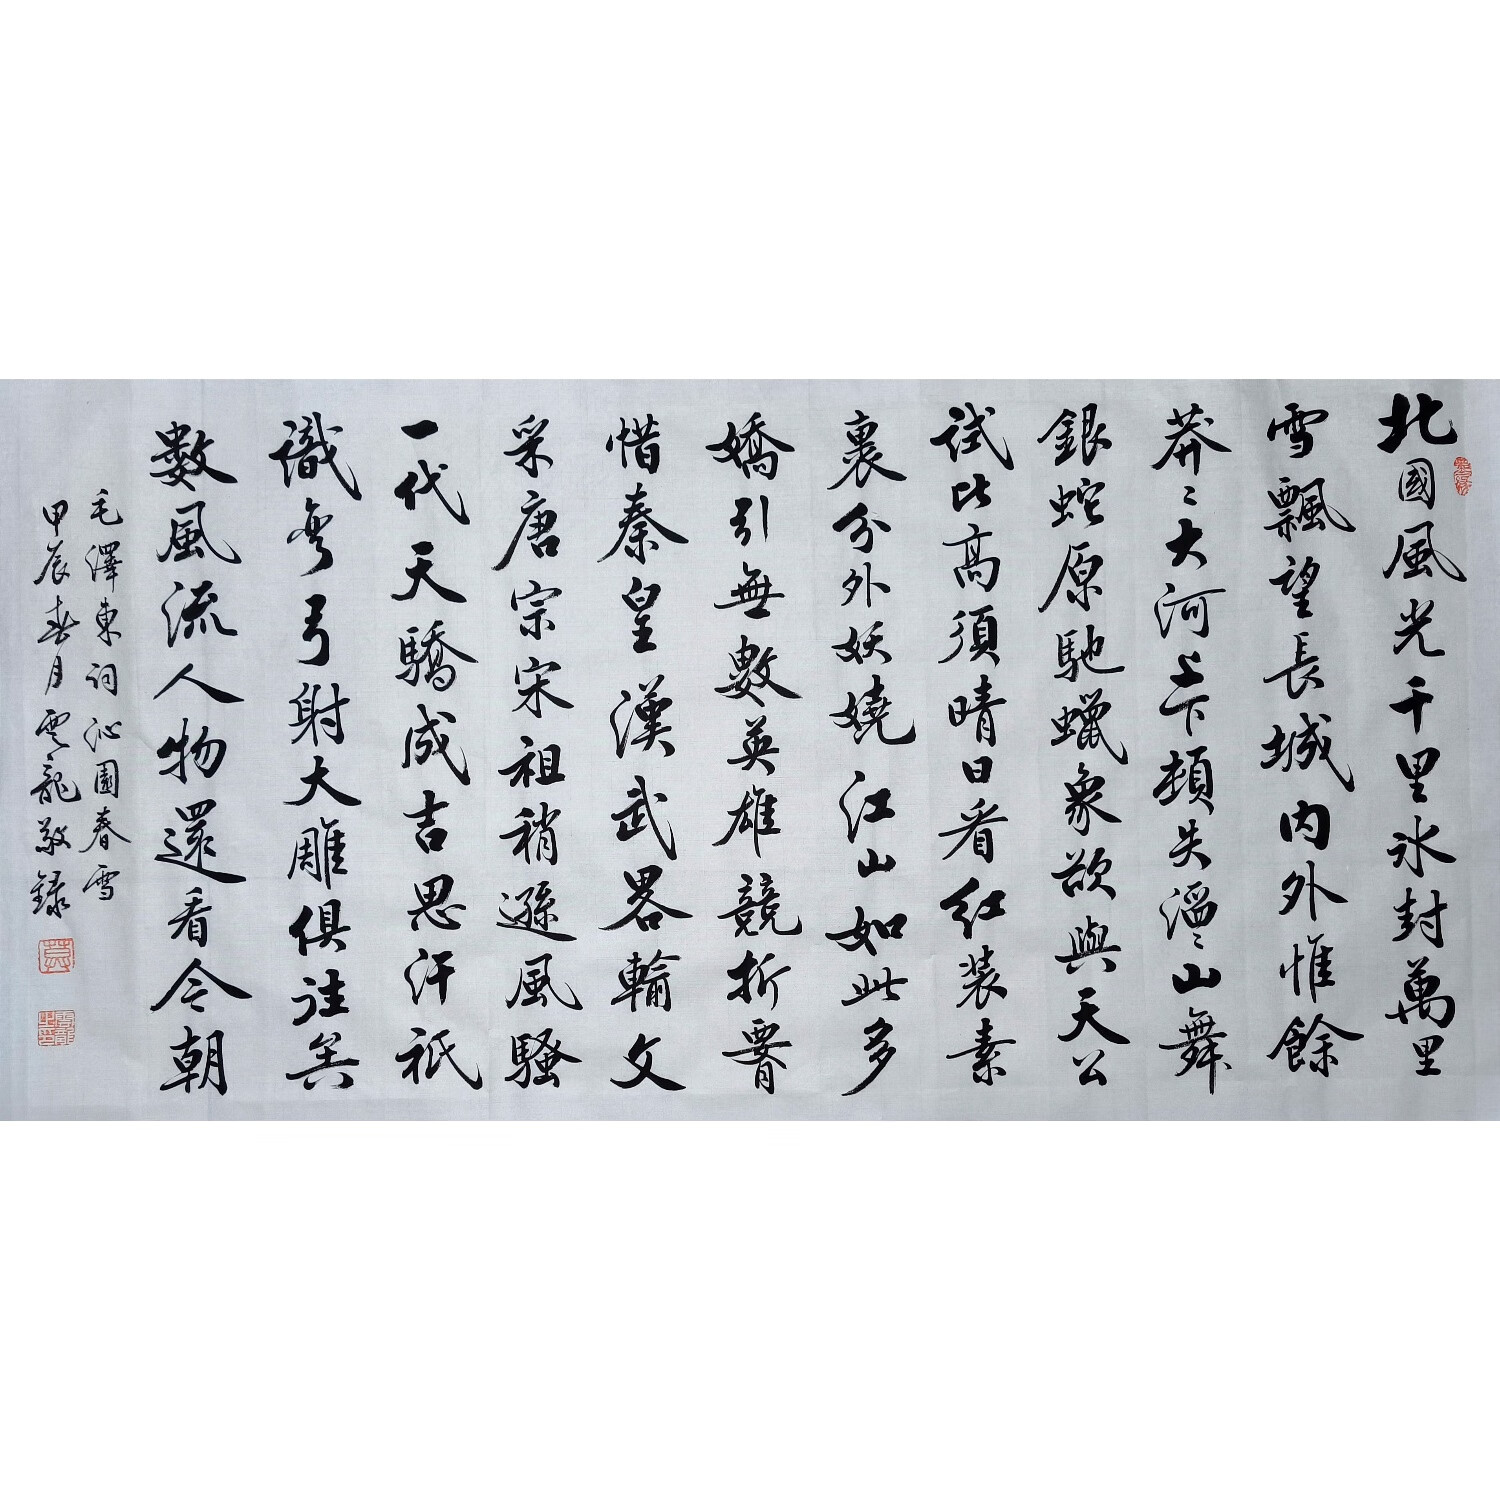 北國風光千里冰封萬里
雪飄望長城内外惟餘
莽〻大河上下頓失滔〻山舞
銀蛇原馳蠟象欲與天公
試比高須晴日看紅裝素
裹分外妖嬈江山如此多
嬌引無數英雄競折腰
惜秦皇漢武畧輸文
采唐宗宋祖稍遜風騷
一代天驕成吉思汗祇
識彎弓射大雕俱往矣
數風流人物還看今朝
毛澤東詞沁園春雪
甲辰春月雲龍敬録